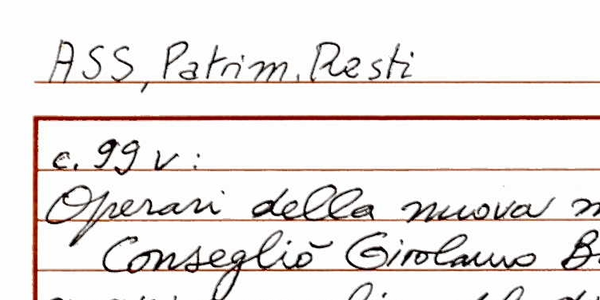 ASS, Patrim. Resti
c. 99 v:
Operari della nuova
Conseglió Girolamo